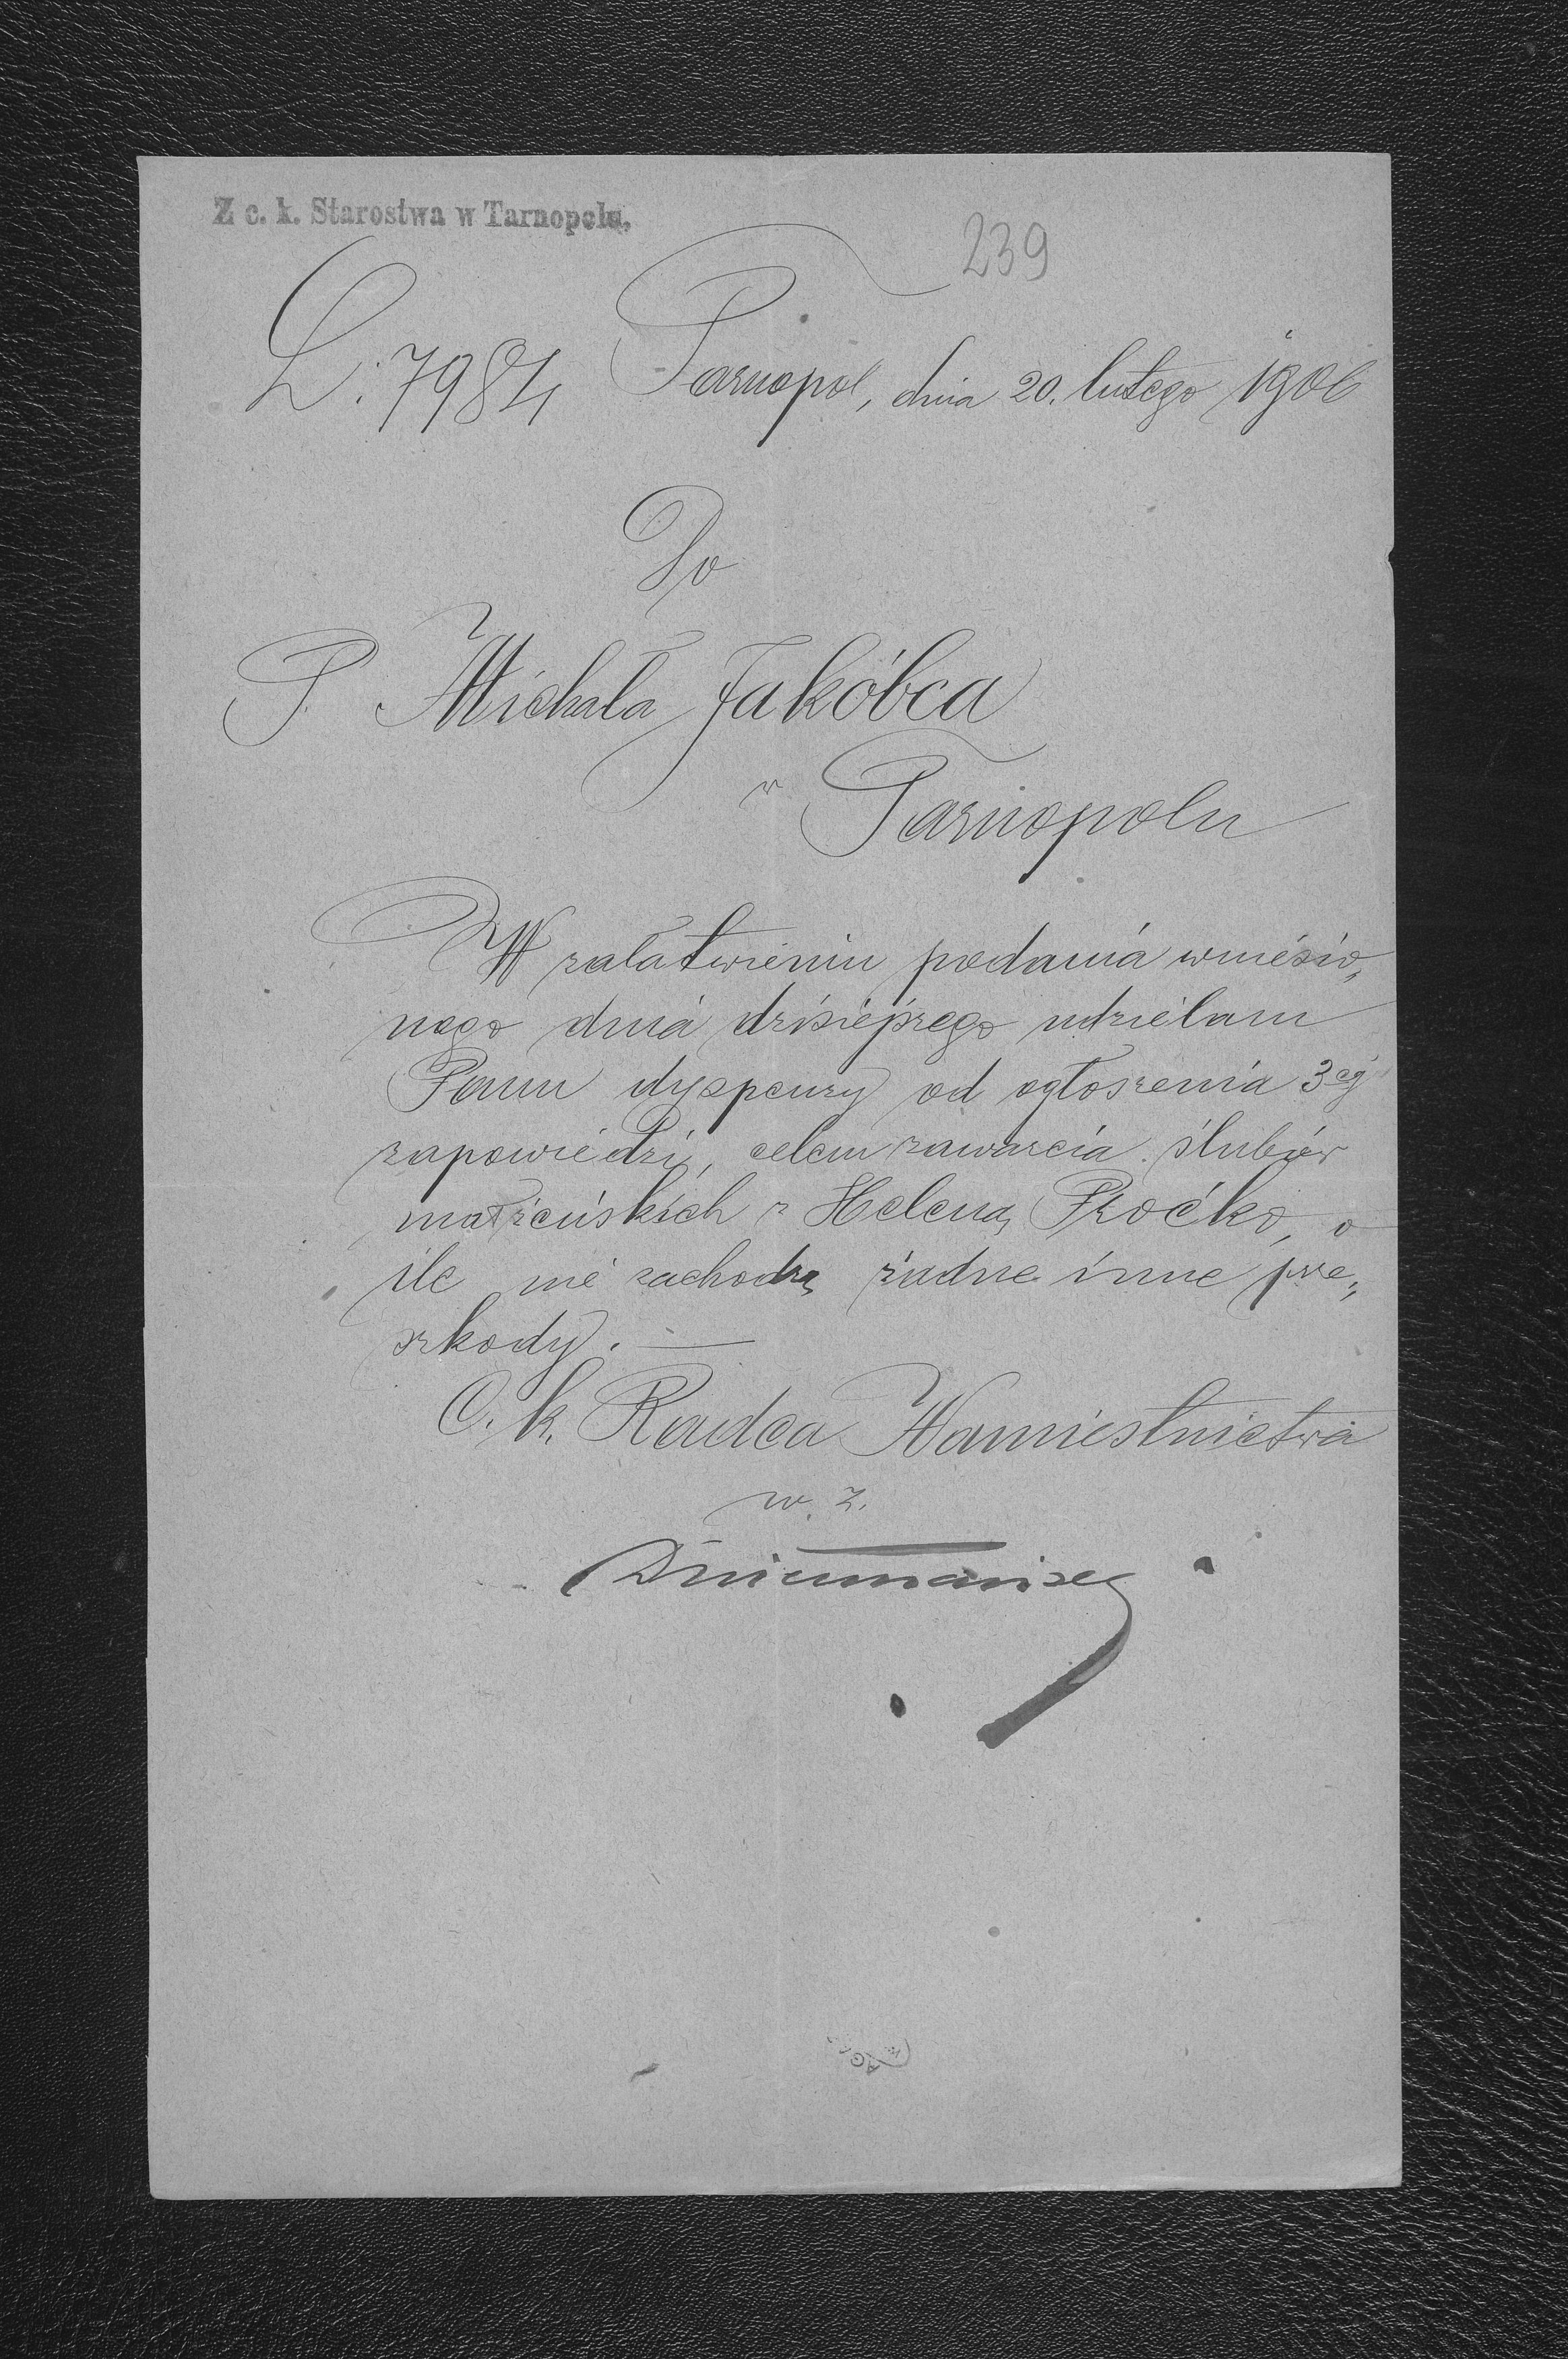 Z c. k. Starostwa w Tarnopolu,
239
L: 7984 Tarnopol, dnia 20. lutego 1906
Do
P. Michała Jakóbca
w Tarnopolu
W załatwieniu podania wniesio„
nego dnia dzisiejszego udzielam
Panu dyspenzy od ogłoszenia 3ej
zapowiedzi, celem zawarcia ślubów
małżeńskich z Heleną Proćko, o
ile nie zachodzą żadne inne prze„
szkody. —
C. k. Radca Namiestnictwa
w. z.